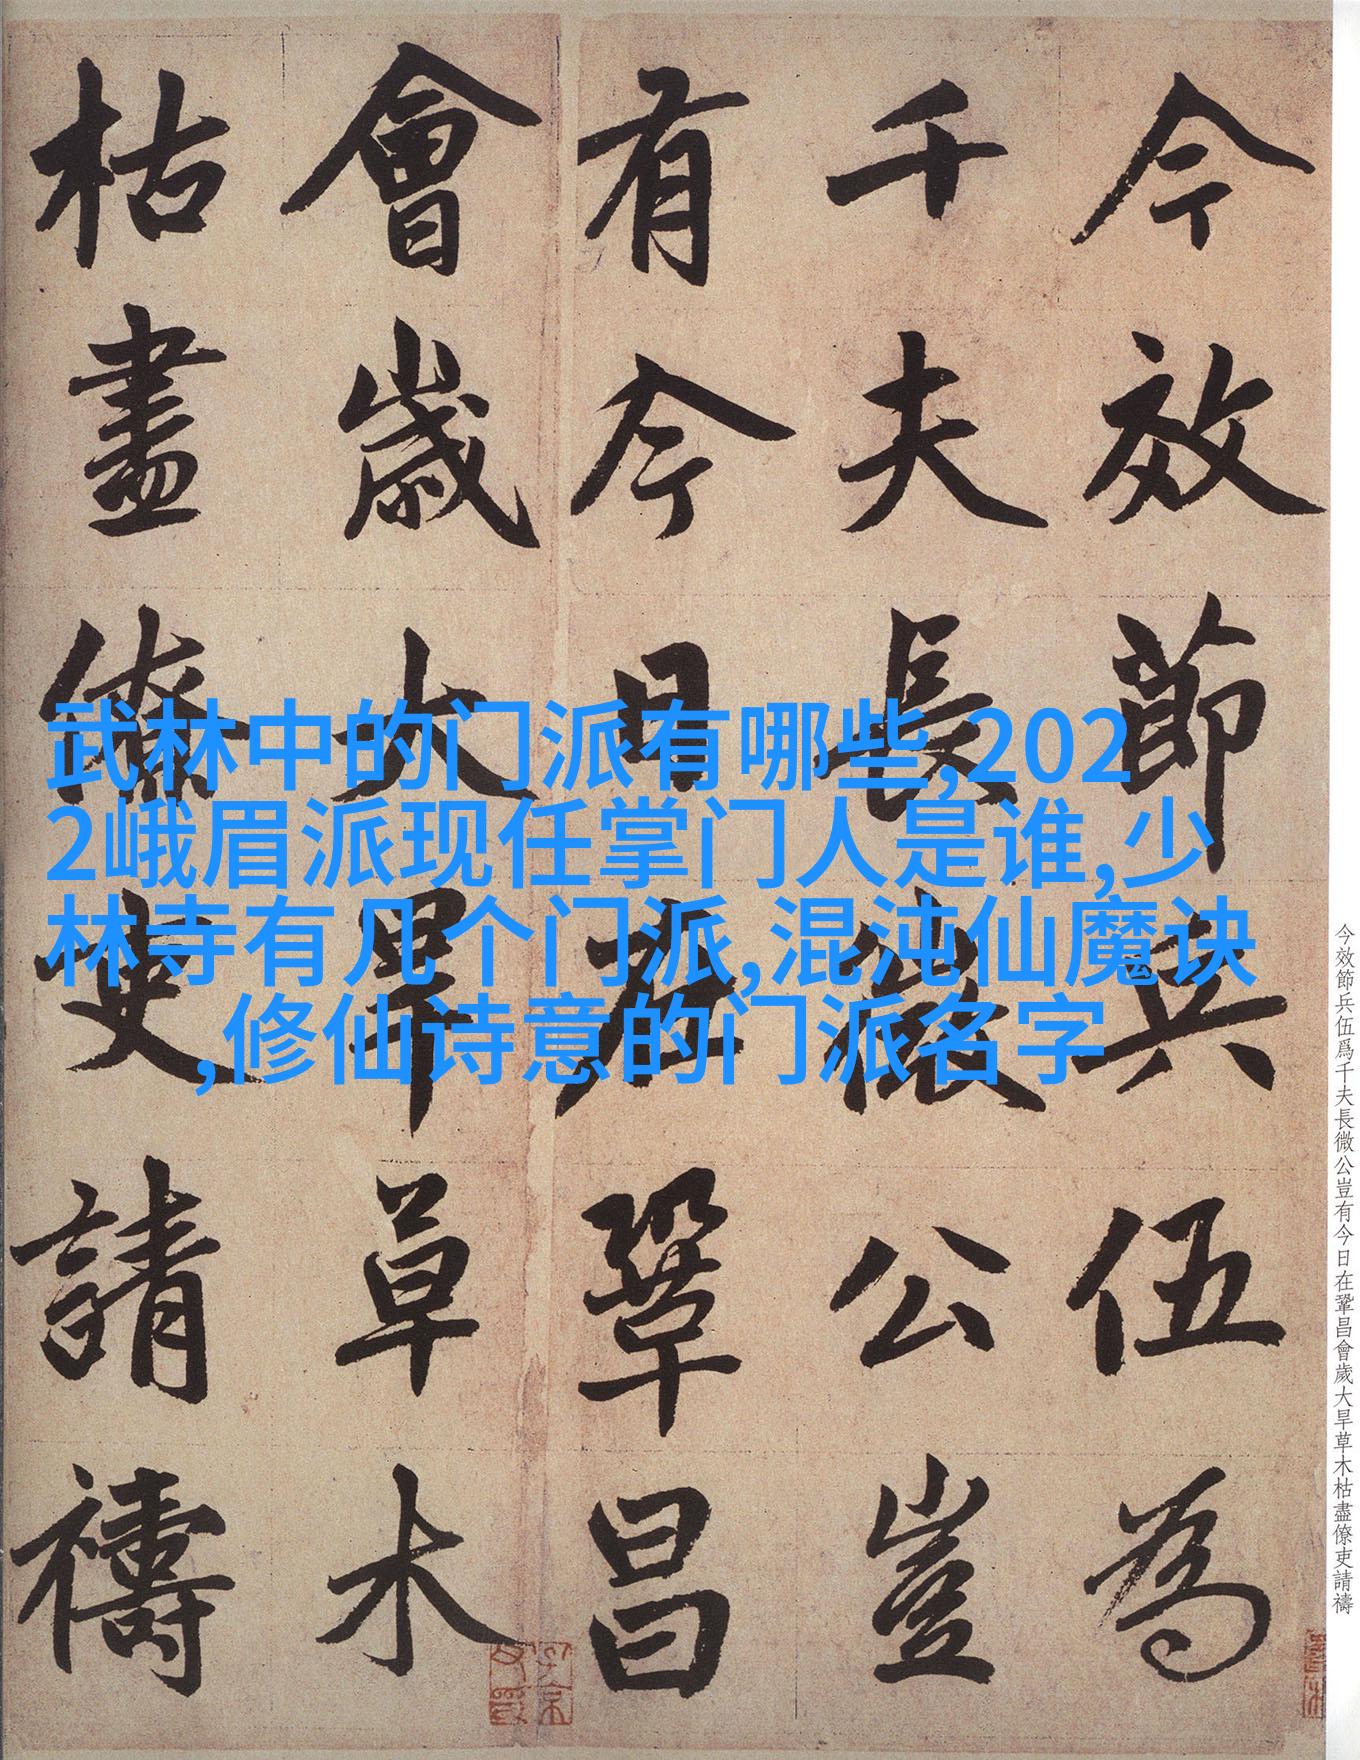 今效節兵伍為
千夫長微公豈
有今日在鞏昌
會歲大旱草木
枯盡僚吏請禱
武林中的门派有哪些,202
2峨眉派现任掌门人是谁,少
林寺有几个门派,混沌仙魔诀
,修仙诗意的门派名字
今效節兵伍爲千夫長微公豈有今日在鞏昌會歲大旱草木枯盡僚吏請禱